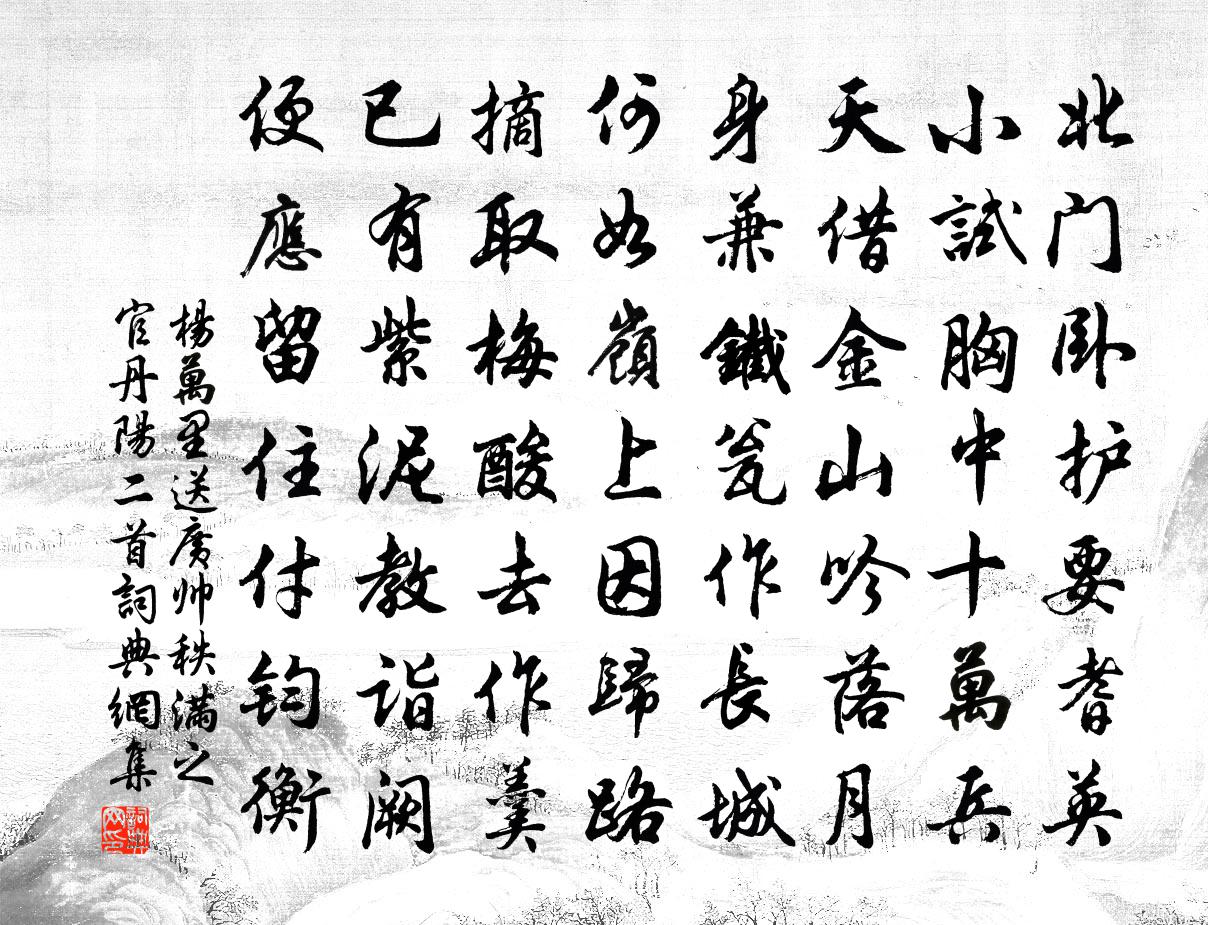 北门卧护要耆英
小試胸中十萬兵
天借金山吟落月
身兼鐵瓮作長城
何如嶺上因歸路
摘取梅酸去作羹
已有紫泥教詣闕
便應留住付鈞衡
楊萬里送廣帅秩满之
官丹陽二首詞典網集